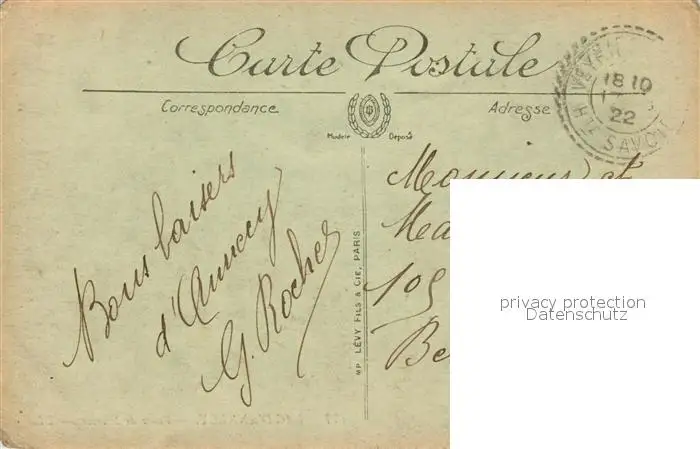 Carte Postale
Correspondance
Adresse
Modèle Déposé
18 10
22
HTE SAVOIE
Bons baisers
d'Annecy
G. Roche
Monsieur et
Ma
105
Be
MP LÉVY FILS & CIE, PARIS
privacy protection
Datenschutz